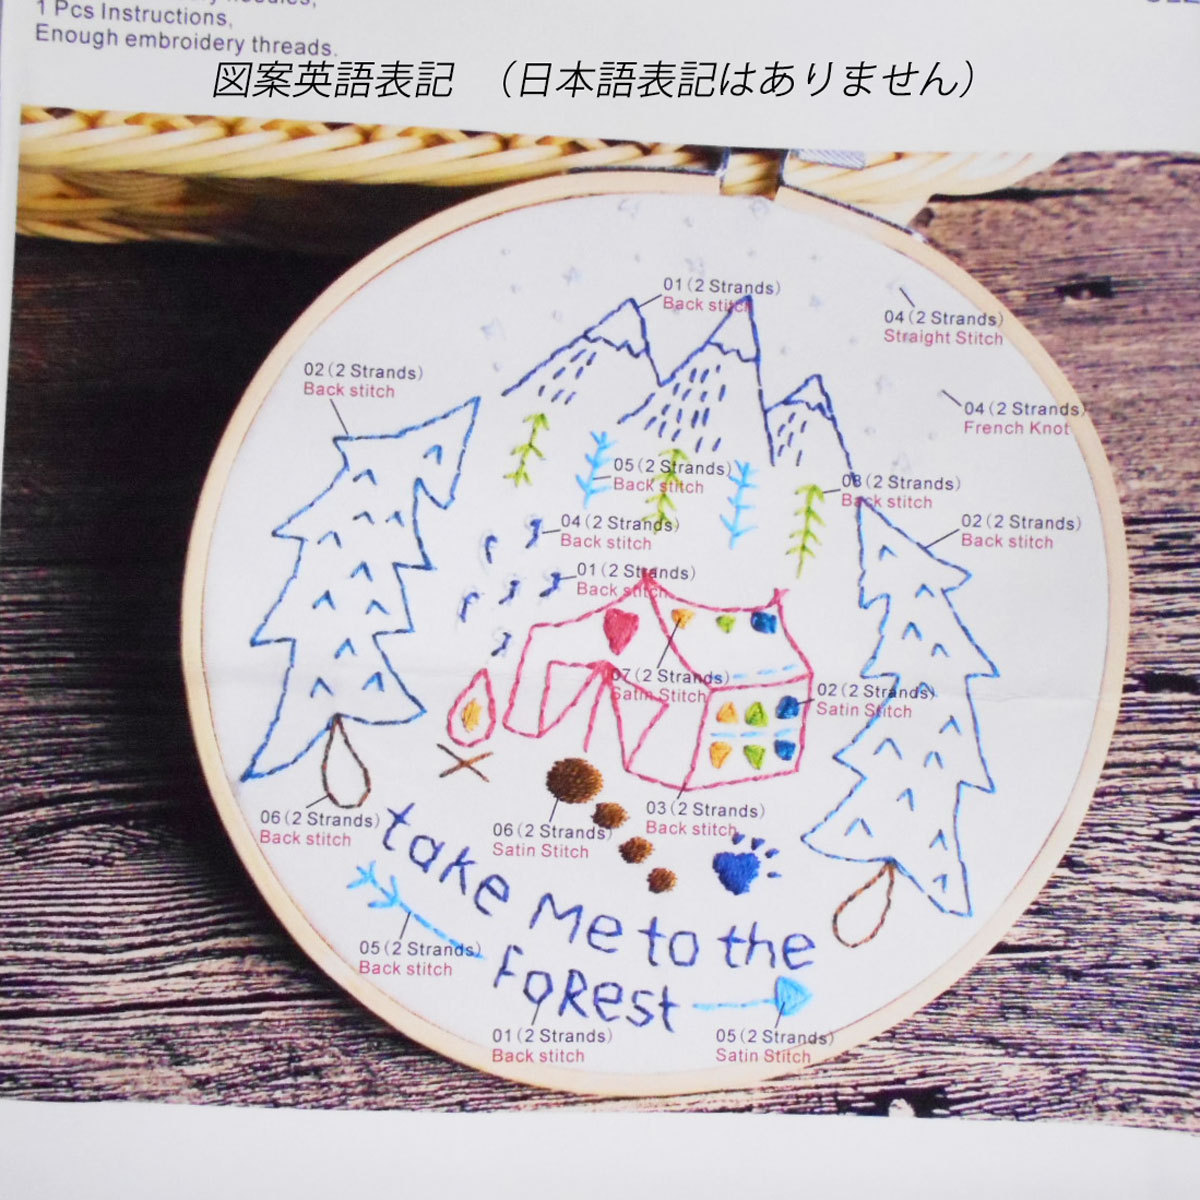 needles,
1 Pcs Instructions,
Enough embroidery threads.
図案英語表記 （日本語表記はありません）
01(2 Strands)
Back stitch
04(2 Strands)
Straight Stitch
02(2 Strands)
Back stitch
04(2 Strands)
French Knot
05(2 Strands)
Back stitch
08(2 Strands)
Back stitch
04(2 Strands)
Back stitch
02(2 Strands)
Back stitch
01(2 Strands)
Back stitch
07(2 Strands)
Satin Stitch
02(2 Strands)
Satin Stitch
06(2 Strands)
Back stitch
06(2 Strands)
Satin Stitch
03(2 Strands)
Back stitch
take Me to the
FoRest
05(2 Strands)
Back stitch
01(2 Strands)
Back stitch
05(2 Strands)
Satin Stitch